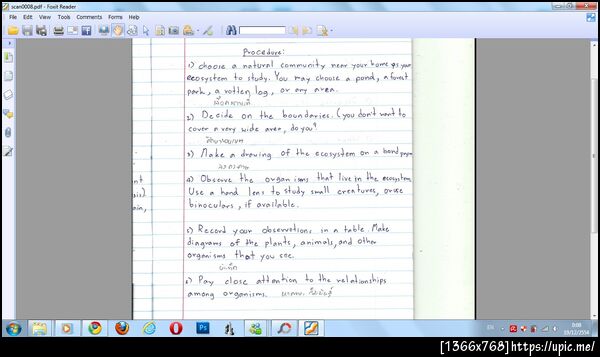 scan0008.pdf - Foxit Reader
File Edit View Tools Comments Forms Help
Procedure:
1) choose a natural community near your home as your
ecosystem to study. You may choose a pond, a forest
park, a rotten log, or any area.
2) Decide on the boundaries. (you don't want to
cover a very wide area, do you?
3) Make a drawing of the ecosystem on a bond paper
4) Observe the organisms that live in the ecosystem
Use a hand lens to study small creatures, or use
binoculars, if available.
5) Record your observations in a table. Make
diagrams of the plants, animals, and other
organisms that you see.
6) Pay close attention to the relationships
among organisms.
EN
0:08
19/12/2554
[1366x768]https://upic.me/